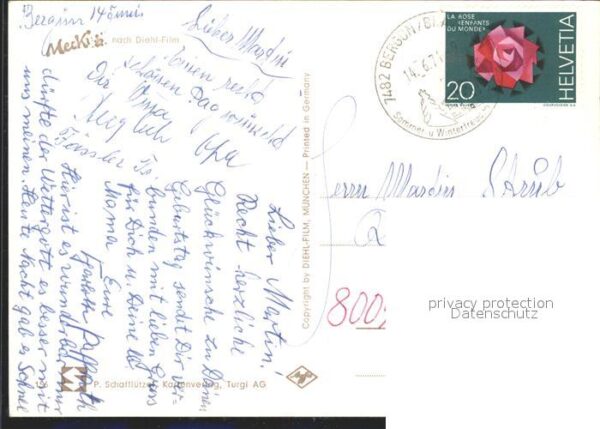 Bergün 14 Juni
Mecki nach Diehl-Film
Lieber Martin
Einen recht
schönen Tag wünscht
Dir
Opa
Lieber Martin!
Recht herzliche
Glückwünsche zu Deinem
Geburtstag sendet Dir ver-
bunden mit lieben Gruss
für Dich u. Deine lb.
Mama Eure
Hier ist es wunderbar nur
dürfte der Wettergott es besser mit
uns meinen. Heute Nacht gab es Schnee
Copyright by DIEHL-FILM, MÜNCHEN — Printed in Germany
156 P. Schafflützel, Kartenverlag, Turgi AG
Agfa
7482 BERGÜN/BRA
14.6.71
Sommer u. Winterfreu
LA ROSE
D'ENFANTS
DU MONDE
20
HELVETIA
COURVOISIER S.A.
Herrn Martin Strub
800
privacy protection
Datenschutz